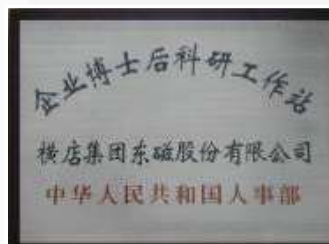 企业博士后科研工作站
横店集团东磁股份有限公司
中华人民共和国人事部